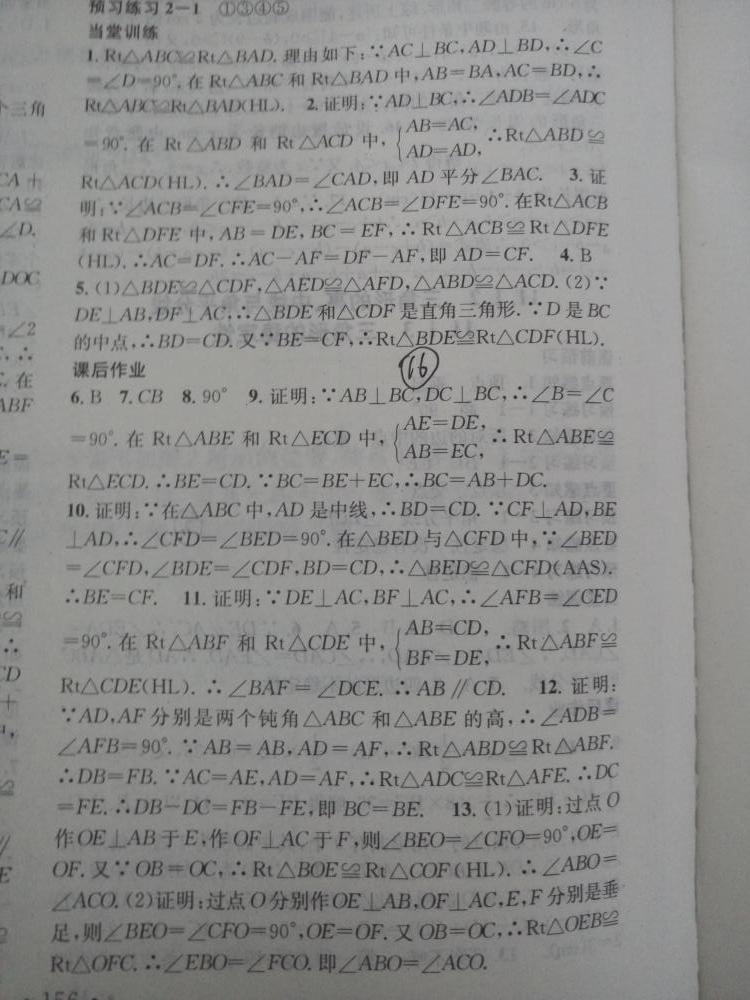 预习练习2-1 ①③④⑤
当堂训练
1. Rt△ABC≌Rt△BAD. 理由如下:∵AC⊥BC,AD⊥BD,∴∠C
=∠D=90°. 在 Rt△ABC 和 Rt△BAD 中,AB=BA,AC=BD,∴
Rt△ABC≌Rt△BAD(HL). 2. 证明:∵AD⊥BC,∴∠ADB=∠ADC
=90°. 在 Rt△ABD 和 Rt△ACD 中, {AB=AC, AD=AD, ∴Rt△ABD≌
Rt△ACD(HL). ∴∠BAD=∠CAD,即 AD 平分∠BAC. 3. 证
明:∵∠ACB=∠CFE=90°,∴∠ACB=∠DFE=90°. 在Rt△ACB
和 Rt△DFE 中,AB=DE,BC=EF,∴Rt△ACB≌Rt△DFE
(HL). ∴AC=DF. ∴AC-AF=DF-AF,即 AD=CF. 4. B
5. (1)△BDE≌△CDF,△AED≌△AFD,△ABD≌△ACD. (2)∵
DE⊥AB,DF⊥AC,∴△BDE和△CDF是直角三角形. ∵D是BC
的中点,∴BD=CD. 又∵BE=CF,∴Rt△BDE≌Rt△CDF(HL).
课后作业 16
6. B 7. CB 8. 90° 9. 证明:∵AB⊥BC,DC⊥BC,∴∠B=∠C
=90°. 在 Rt△ABE 和 Rt△ECD 中, {AE=DE, AB=EC, ∴Rt△ABE≌
Rt△ECD. ∴BE=CD. ∵BC=BE+EC,∴BC=AB+DC.
10. 证明:∵在△ABC 中,AD 是中线,∴BD=CD. ∵CF⊥AD,BE
⊥AD,∴∠CFD=∠BED=90°. 在△BED 与△CFD 中,∵∠BED
=∠CFD,∠BDE=∠CDF,BD=CD,∴△BED≌△CFD(AAS).
∴BE=CF. 11. 证明:∵DE⊥AC,BF⊥AC,∴∠AFB=∠CED
=90°. 在 Rt△ABF 和 Rt△CDE 中, {AB=CD, BF=DE, ∴Rt△ABF≌
Rt△CDE(HL). ∴∠BAF=∠DCE. ∴AB∥CD. 12. 证明:
∵AD,AF 分别是两个钝角△ABC 和△ABE 的高,∴∠ADB=
∠AFB=90°. ∵AB=AB,AD=AF,∴Rt△ABD≌Rt△ABF.
∴DB=FB. ∵AC=AE,AD=AF,∴Rt△ADC≌Rt△AFE. ∴DC
=FE. ∴DB-DC=FB-FE,即 BC=BE. 13. (1)证明:过点O
作OE⊥AB于E,作OF⊥AC于F,则∠BEO=∠CFO=90°,OE=
OF. 又∵OB=OC,∴Rt△BOE≌Rt△COF(HL). ∴∠ABO=
∠ACO. (2)证明:过点O分别作OE⊥AB,OF⊥AC,E,F分别是垂
足,则∠BEO=∠CFO=90°,OE=OF. 又OB=OC,∴Rt△OEB≌
Rt△OFC. ∴∠EBO=∠FCO. 即∠ABO=∠ACO.
156
个三角
CA+
CA≌
∠D.
DOC
∠2
∴
在
ABF
E=
C∥
和
≌
∴
CD
+
中,
≌
∥
E
≌